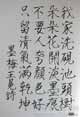 我家洗硯池頭樹
朵朵花開淡墨痕
不要人夸顏色好
只留清氣滿乾坤
墨梅王冕詩